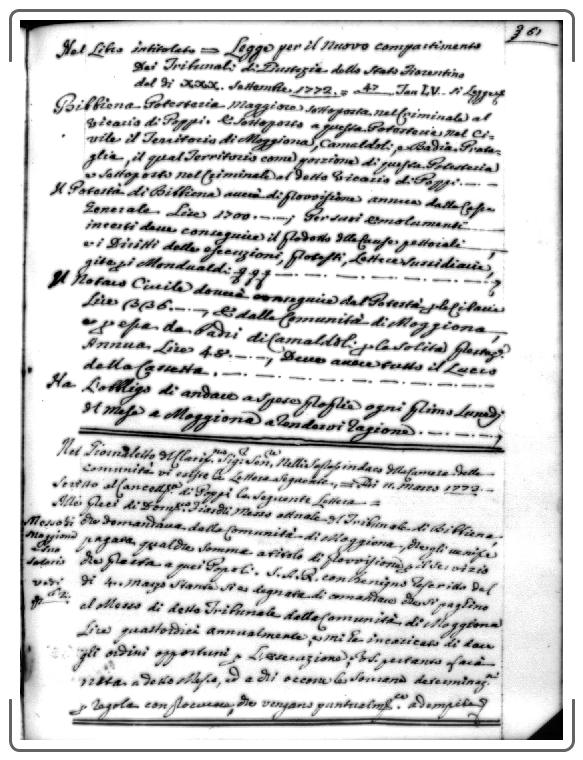 361
Nel Libro intitolato = Legge per il Nuovo compartimento
Dei Tribunali di Giustizia dello Stato Fiorentino
del dì XXX. Settembre 1772. = 47 Tan LV. Si Legge
Bibbiena Potesteria Maggiore sottoposta nel Criminale al
Vicario di Poppi. E Sottoposto a questa Potesteria nel Ci-
vile il Territorio di Moggiona, Camaldoli, e Badia Prata-
glia, il qual Territorio come porzione di questa Potesteria
è Sottoposto nel Criminale al detto Vicario di Poppi.
Il Potestà di Bibbiena averà di Provvisione annua dalla Cassa
Generale Lire 1700. ; Per sari Emolumenti
incerti deve conseguire il Prodotto delle Cause pettoriali
e i Diritti delle esecuzioni, Protesti, Lettere Sussidiarie,
gite, e i Mondualdi
Il Notaro Civile doverà conseguire dal Potestà p. le Citazie
Lire 336. , E dalla Comunità di Moggiona,
e p. essa da Padri di Camaldoli p. la Solita
Annua Lire 48. , Deve avere tutto il Lucro
della Cassetta.
Ha L'obbligo di andare a Spese Proprie ogni Primo Lunedì
del Mese a Moggiona a Rendervi Ragione.
Nel Giornaletto del Sig. Sen.
Comunità vi esiste la Lettera Seguente, = Dì 11. Marzo 1772.
Scritto al Cancell. di Poppi la Seguente Lettera =
Alli Preci di Dom. Giardi Messo attuale del Tribunale di Bibbiena,
che domandava dalla Comunità di Moggiona, che gli venisse
pagata qualche somma a titolo di provvisione p. il Servizio
che presta a quei Popoli. S. A. R. con Benigno Rescritto del
dì 4. Marzo Stante si è degnata di comandare che si paghino
al Messo di detto Tribunale dalla Comunità di Moggiona
Lire quattordici annualmente, e mi ha incaricato di dare
gli ordini opportuni p. L'esecuzione, VS. pertanto farà
nota a detto Messo, ed a chi occorre la Sovrana determinaz.
e Regola con procurare, che vengano puntualm. adempite
Messo di
Moggiona
Suo
Salario
vedi